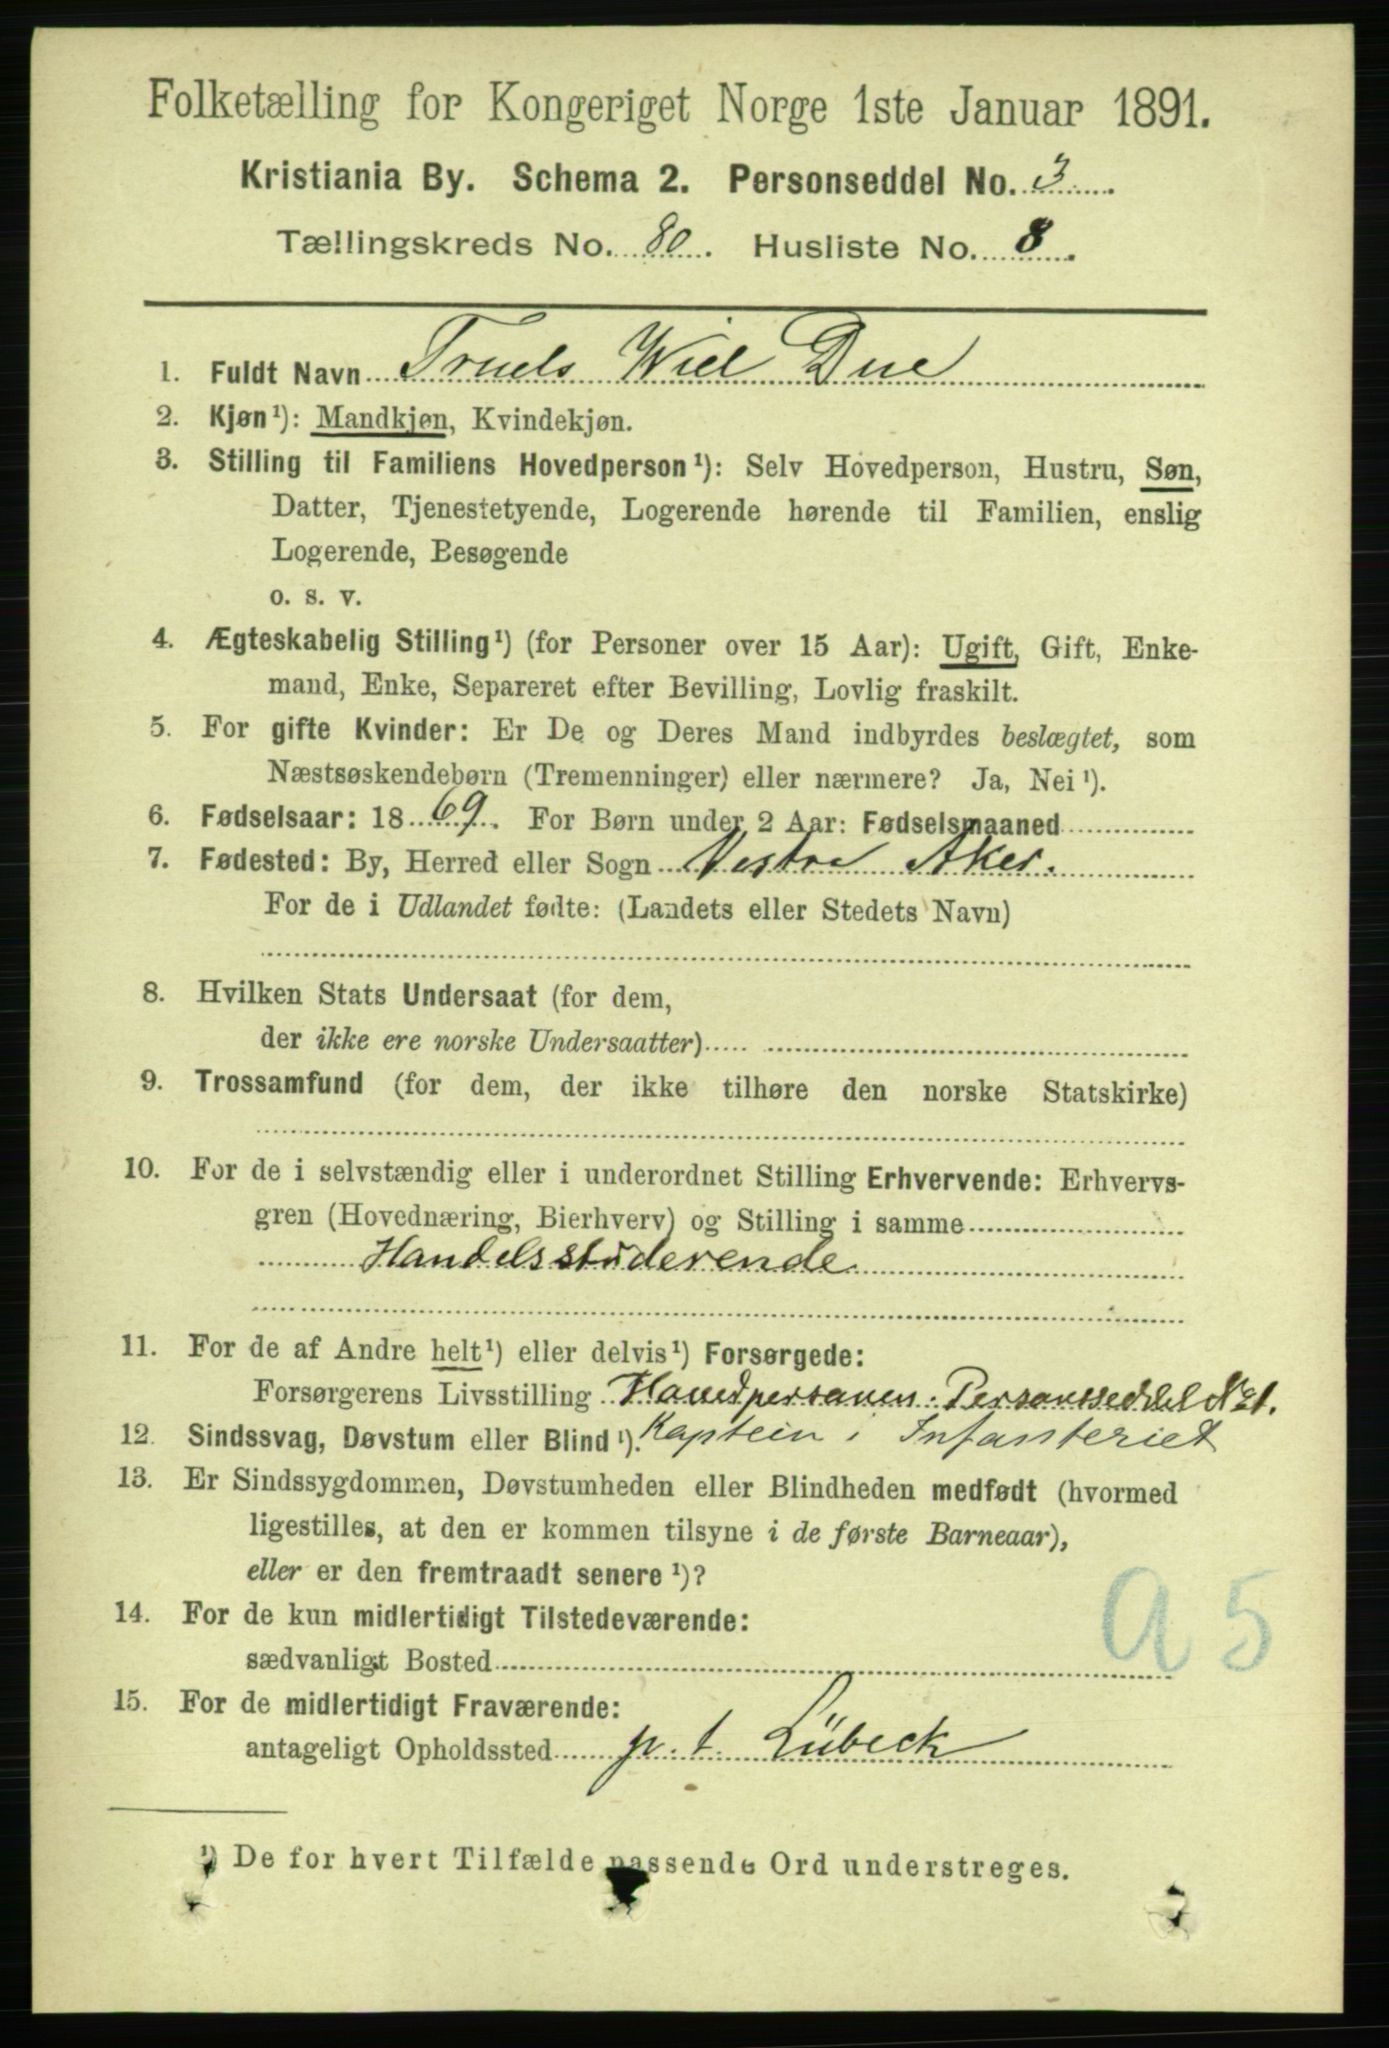 Folketælling for Kongeriget Norge 1ste Januar 1891.
Kristiania By. Schema 2. Personseddel No. 3
Tællingskreds No. 80. Husliste No. 8.
1. Fuldt Navn Truels Wiel Due
2. Kjøn¹): Mandkjøn, Kvindekjøn.
3. Stilling til Familiens Hovedperson¹): Selv Hovedperson, Hustru, Søn,
Datter, Tjenestetyende, Logerende hørende til Familien, enslig
Logerende, Besøgende
o. s. v.
4. Ægteskabelig Stilling¹) (for Personer over 15 Aar): Ugift, Gift, Enke-
mand, Enke, Separeret efter Bevilling, Lovlig fraskilt.
5. For gifte Kvinder: Er De og Deres Mand indbyrdes beslægtet, som
Næstsøskendebørn (Tremenninger) eller nærmere? Ja, Nei¹).
6. Fødselsaar: 1869. For Børn under 2 Aar: Fødselsmaaned
7. Fødested: By, Herred eller Sogn Vestre Aker.
For de i Udlandet fødte: (Landets eller Stedets Navn)
8. Hvilken Stats Undersaat (for dem,
der ikke ere norske Undersaatter)
9. Trossamfund (for dem, der ikke tilhøre den norske Statskirke)
10. For de i selvstændig eller i underordnet Stilling Erhvervende: Erhvervs-
gren (Hovednæring, Bierhverv) og Stilling i samme
Handelsstuderende
11. For de af Andre helt¹) eller delvis¹) Forsørgede:
Forsørgerens Livsstilling Hovedpersonen. Personseddel No 1.
12. Sindssvag, Døvstum eller Blind¹). Kaptein i Infanteriet
13. Er Sindssygdommen, Døvstumheden eller Blindheden medfødt (hvormed
ligestilles, at den er kommen tilsyne i de første Barneaar),
eller er den fremtraadt senere¹)?
14. For de kun midlertidigt Tilstedeværende:
sædvanligt Bosted
a 5
15. For de midlertidigt Fraværende:
antageligt Opholdssted p. t. Lübeck
¹) De for hvert Tilfælde passende Ord understreges.